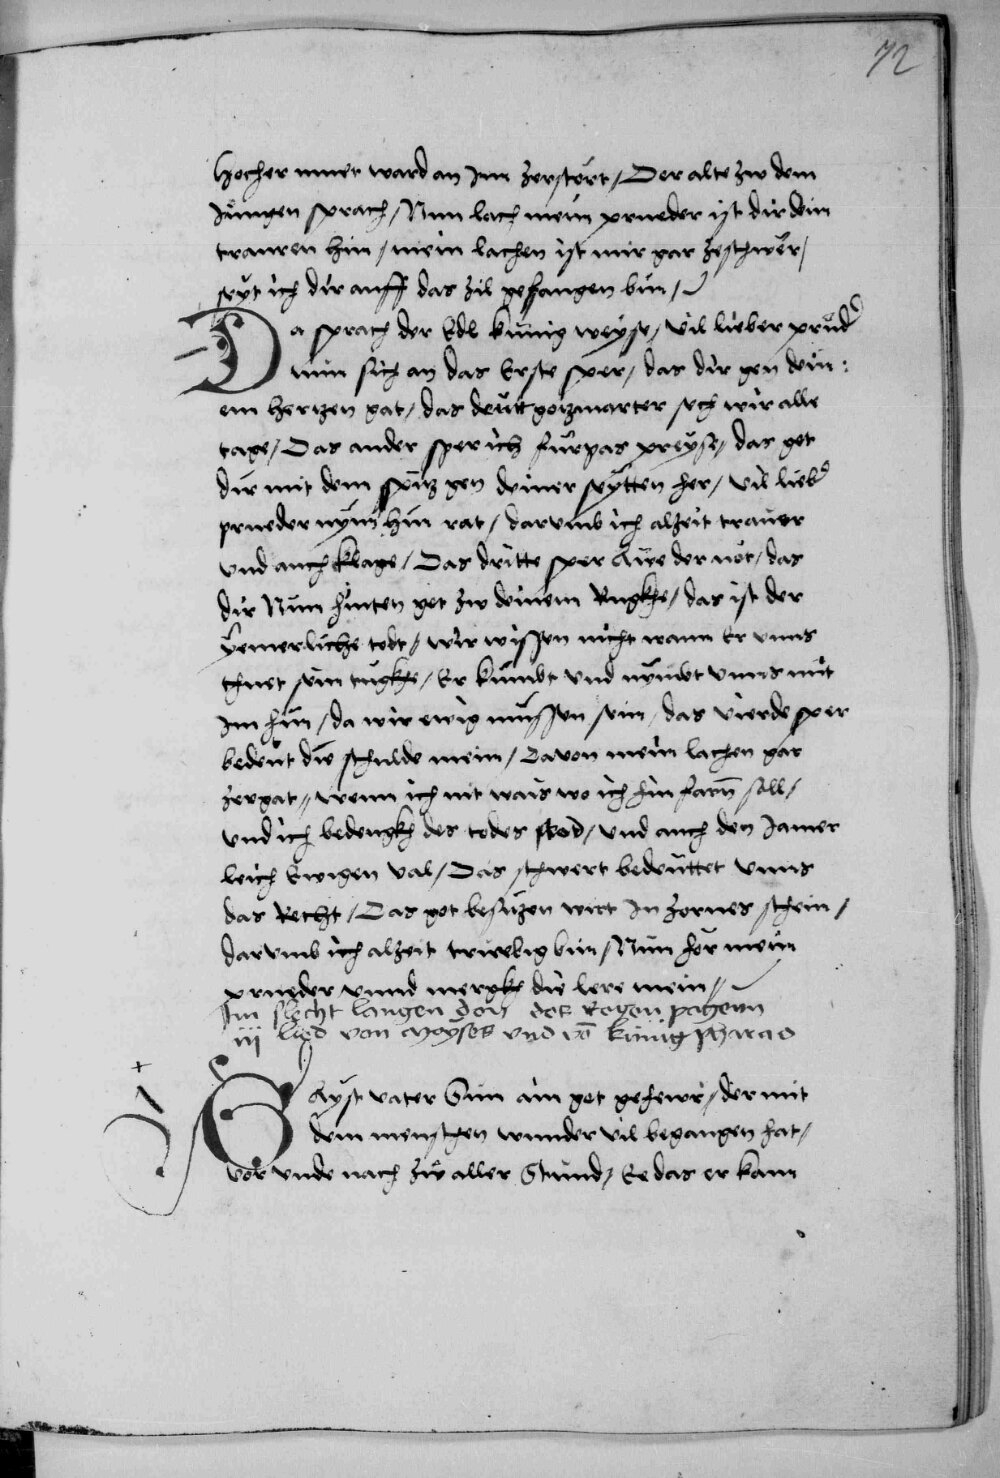 72
hocher muet ward an Im zerstört / Der alte zw dem
Jüngen sprach / Nun lach mein prueder ist dir dein
trauren hin / mein lachen ist mir gar zeschwër /
seyt ich dir auff das zil gefangen bin /
Da sprach der Edl künig weyse / vil lieber prüder
nun sich an das Erste sper / das dir gen dein :
em hertzen gat / das deütt gotzmarter sech wir alle
tage / Das ander sper ich fürpas preyse / das get
dir mit dem spitz gen deiner seytten her / vil lieber
prueder nÿm hin rat / darumb ich alzeit trauer
und auch klage / Das dritte sper Awe der nöt / das
dir Nun hinten get zw deinem Rugkhe / das ist der
ÿemerliche todt / wir wissen nicht wann Er unns
thuet sein tügkhe / Er kumbt und nÿmbt unns mit
im hin / da wir ewig müssen sein / das vierde sper
bedeüt die schulde mein / Davon mein lachen gar
zergat / wenn ich nit wais wo ich hin farñ soll /
und ich bedengkh des todes / und auch den Jamer
leich Ewigen val / Das schwert bedeüttet unns
das Recht / Das got besitzen wirt In zornes schein /
darumb ich alzeit truebig bin / Nun hör mein
prueder unnd mergkh die lere mein /
Im slecht langen don des Regen pagenn
iii lied von Moyses und vō künig pharao
GAyst vater Sun ain got gehewr / der mit
dem menschen wunder vil begangen hat /
vor unde nach zw aller Stund / Ee das er kam